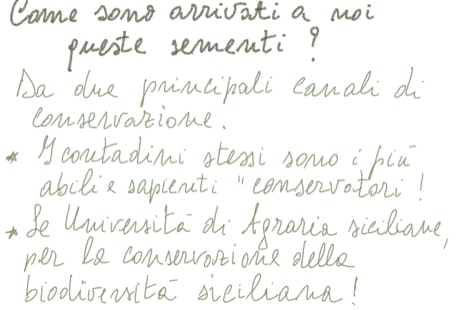 Come sono arrivati a noi
queste sementi ?
Da due principali canali di
conservazione.
* I contadini stessi sono i più
abili e sapienti "conservatori !
* Le Università di Agraria siciliane,
per la conservazione della
biodiversità siciliana !